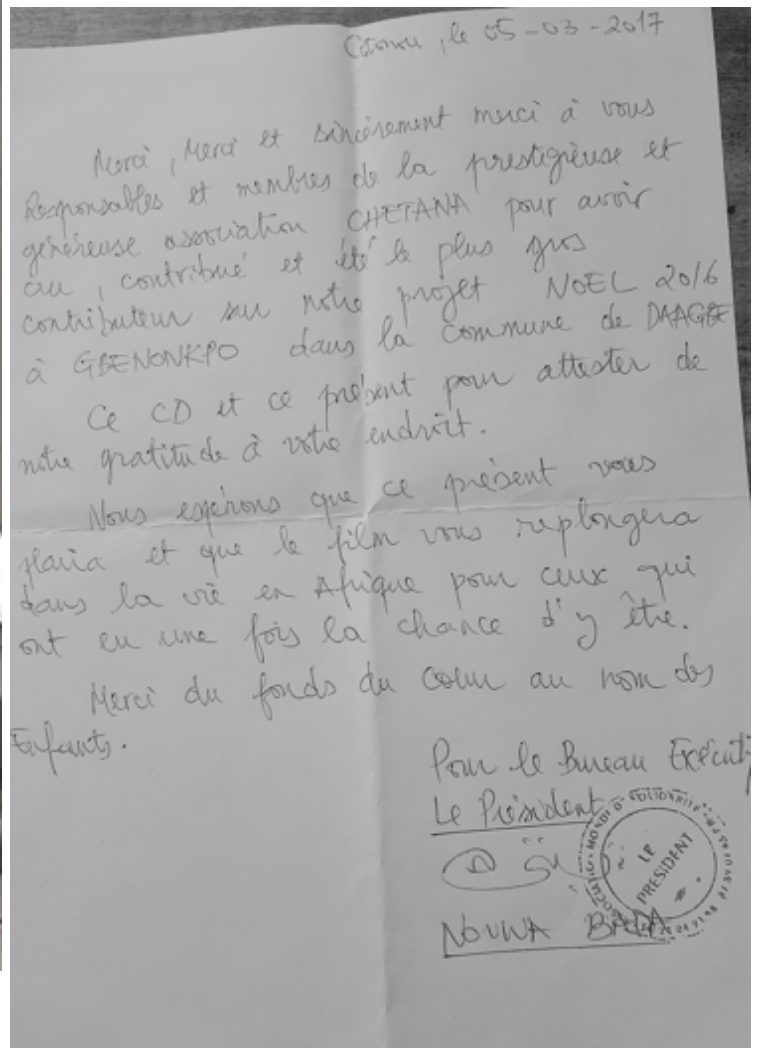 Cotonou, le 05-03-2017
Merci, Merci et sincèrement merci à vous
Responsables et membres de la prestigieuse et
généreuse association CHETANA pour avoir
cru, contribué et été le plus gros
contributeur sur notre projet NOEL 2016
à GBENONKPO dans la commune de DAAGBE
Ce CD et ce présent pour attester de
notre gratitude à votre endroit.
Nous espérons que ce présent vous
plaira et que le film vous replongera
dans la vie en Afrique pour ceux qui
ont eu une fois la chance d'y être.
Merci du fonds du coeur au nom des
Enfants.
Pour le Bureau Exécuti
Le Président
LE
PRESIDENT
BADA